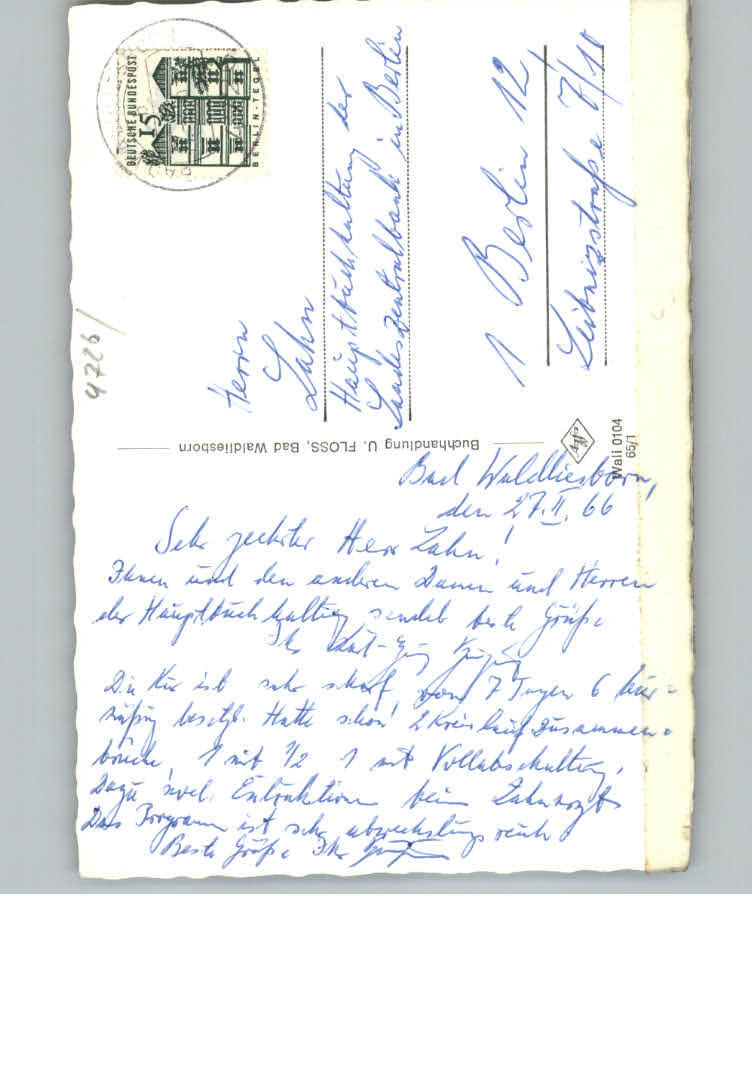 DEUTSCHE BUNDESPOST
15
BERLIN-TEGEL
4726/
Herrn
Zahn
Hauptbuchhaltung der
Landeszentralbank in Berlin
1 Berlin 12
Leibnizstraße 7/10
Buchhandlung U. FLOSS, Bad Waldliesborn
Wali 0104
65/1
Bad Waldliesborn,
den 27.II.66
Sehr geehrter Herr Zahn!
Ihnen und den anderen Damen und Herren
der Hauptbuchhaltung sendet beste Grüße
Ihr
Die Kur ist sehr scharf, von 7 Tagen 6 kur-
mäßig besetzt. Hatte schon 2 Kreislaufzusammen-
brüche, 1 mit 1/2 1 mit Vollabschaltung,
Dazu Extraktion beim Zahnarzt
Das Programm ist sehr abwechslungsreich
Beste Grüße Ihr